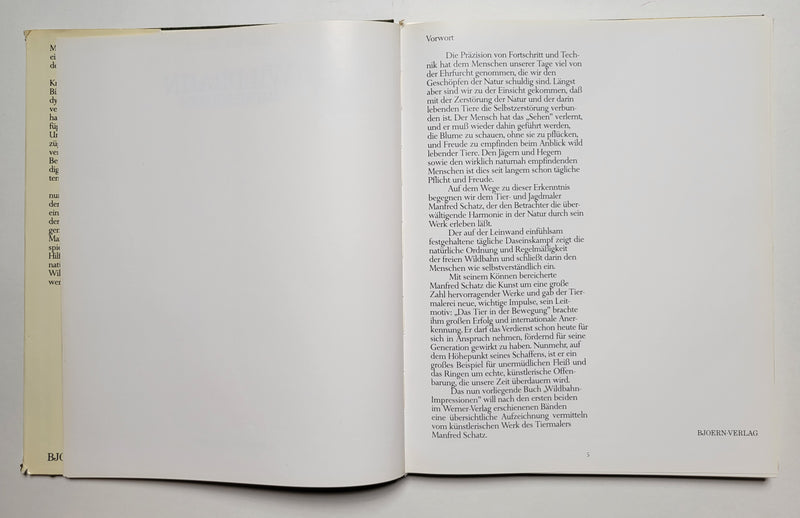 M
ei
de
Kr
Bi
dy
ve
ha
fü
Ur
zü
ve
Be
dig
ter
nu
der
ein
der
ger
Ma
spi
Hil
nat
Wil
wer
BJO
Vorwort
Die Präzision von Fortschritt und Tech-
nik hat dem Menschen unserer Tage viel von
der Ehrfurcht genommen, die wir den
Geschöpfen der Natur schuldig sind. Längst
aber sind wir zu der Einsicht gekommen, daß
mit der Zerstörung der Natur und der darin
lebenden Tiere die Selbstzerstörung verbun-
den ist. Der Mensch hat das „Sehen“ verlernt,
und er muß wieder dahin geführt werden,
die Blume zu schauen, ohne sie zu pflücken,
und Freude zu empfinden beim Anblick wild
lebender Tiere. Den Jägern und Hegern
sowie den wirklich naturnah empfindenden
Menschen ist dies seit langem schon tägliche
Pflicht und Freude.
Auf dem Wege zu dieser Erkenntnis
begegnen wir dem Tier- und Jagdmaler
Manfred Schatz, der den Betrachter die über-
wältigende Harmonie in der Natur durch sein
Werk erleben läßt.
Der auf der Leinwand einfühlsam
festgehaltene tägliche Daseinskampf zeigt die
natürliche Ordnung und Regelmäßigkeit
der freien Wildbahn und schließt darin den
Menschen wie selbstverständlich ein.
Mit seinem Können bereicherte
Manfred Schatz die Kunst um eine große
Zahl hervorragender Werke und gab der Tier-
malerei neue, wichtige Impulse, sein Leit-
motiv: „Das Tier in der Bewegung“ brachte
ihm großen Erfolg und internationale Aner-
kennung. Er darf das Verdienst schon heute für
sich in Anspruch nehmen, fördernd für seine
Generation gewirkt zu haben. Nunmehr, auf
dem Höhepunkt seines Schaffens, ist er ein
großes Beispiel für unermüdlichen Fleiß und
das Ringen um echte, künstlerische Offen-
barung, die unsere Zeit überdauern wird.
Das nun vorliegende Buch „Wildbahn-
Impressionen“ will nach den ersten beiden
im Werner-Verlag erschienenen Bänden
eine übersichtliche Aufzeichnung vermitteln
vom künstlerischen Werk des Tiermalers
Manfred Schatz.
BJOERN-VERLAG
5